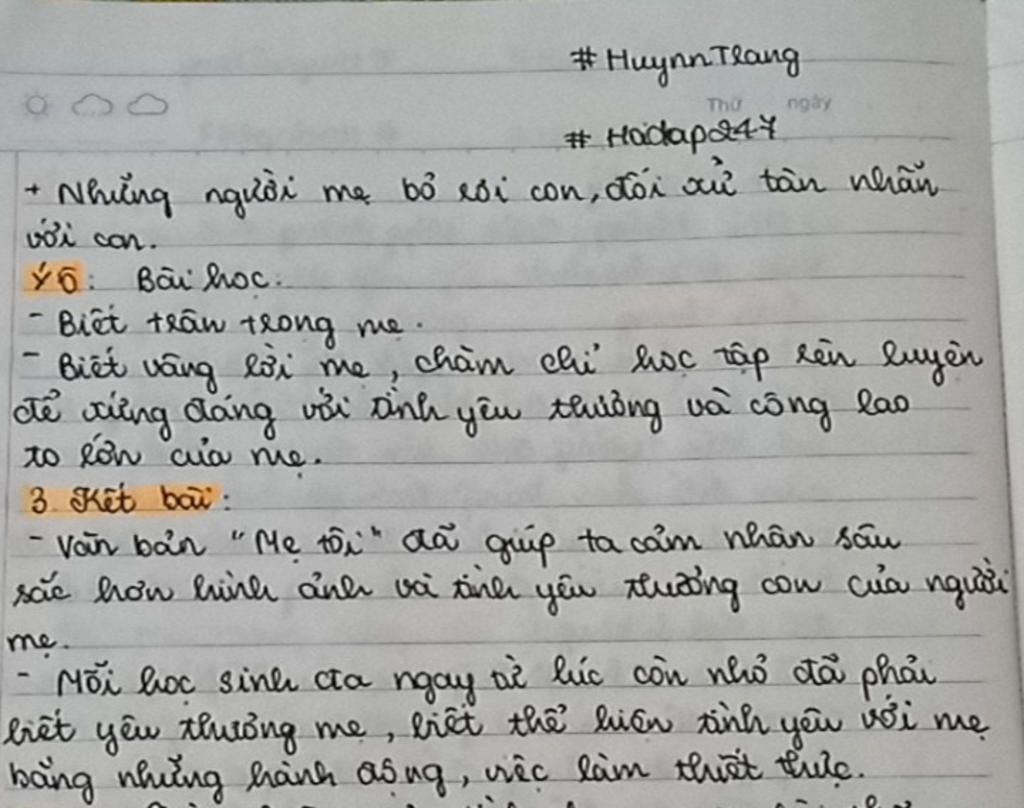 #HuynnTrang
Thứ ngày
#Hoidap247
+ Những người mẹ bỏ rơi con, đối xử tàn nhẫn
với con.
Ý 5: Bài học:
- Biết trân trọng mẹ.
- Biết vâng lời mẹ, chăm chỉ học tập rèn luyện
để xứng đáng với tình yêu thương và công lao
to lớn của mẹ.
3. Kết bài:
- Văn bản "Mẹ tôi" đã giúp ta cảm nhân sâu
sắc hơn hình ảnh và tình yêu thương con của người
mẹ.
- Mỗi học sinh cta ngay từ lúc còn nhỏ đã phải
biết yêu thương mẹ, biết thể hiện tình yêu với mẹ
bằng những hành động, việc làm thiết thực.